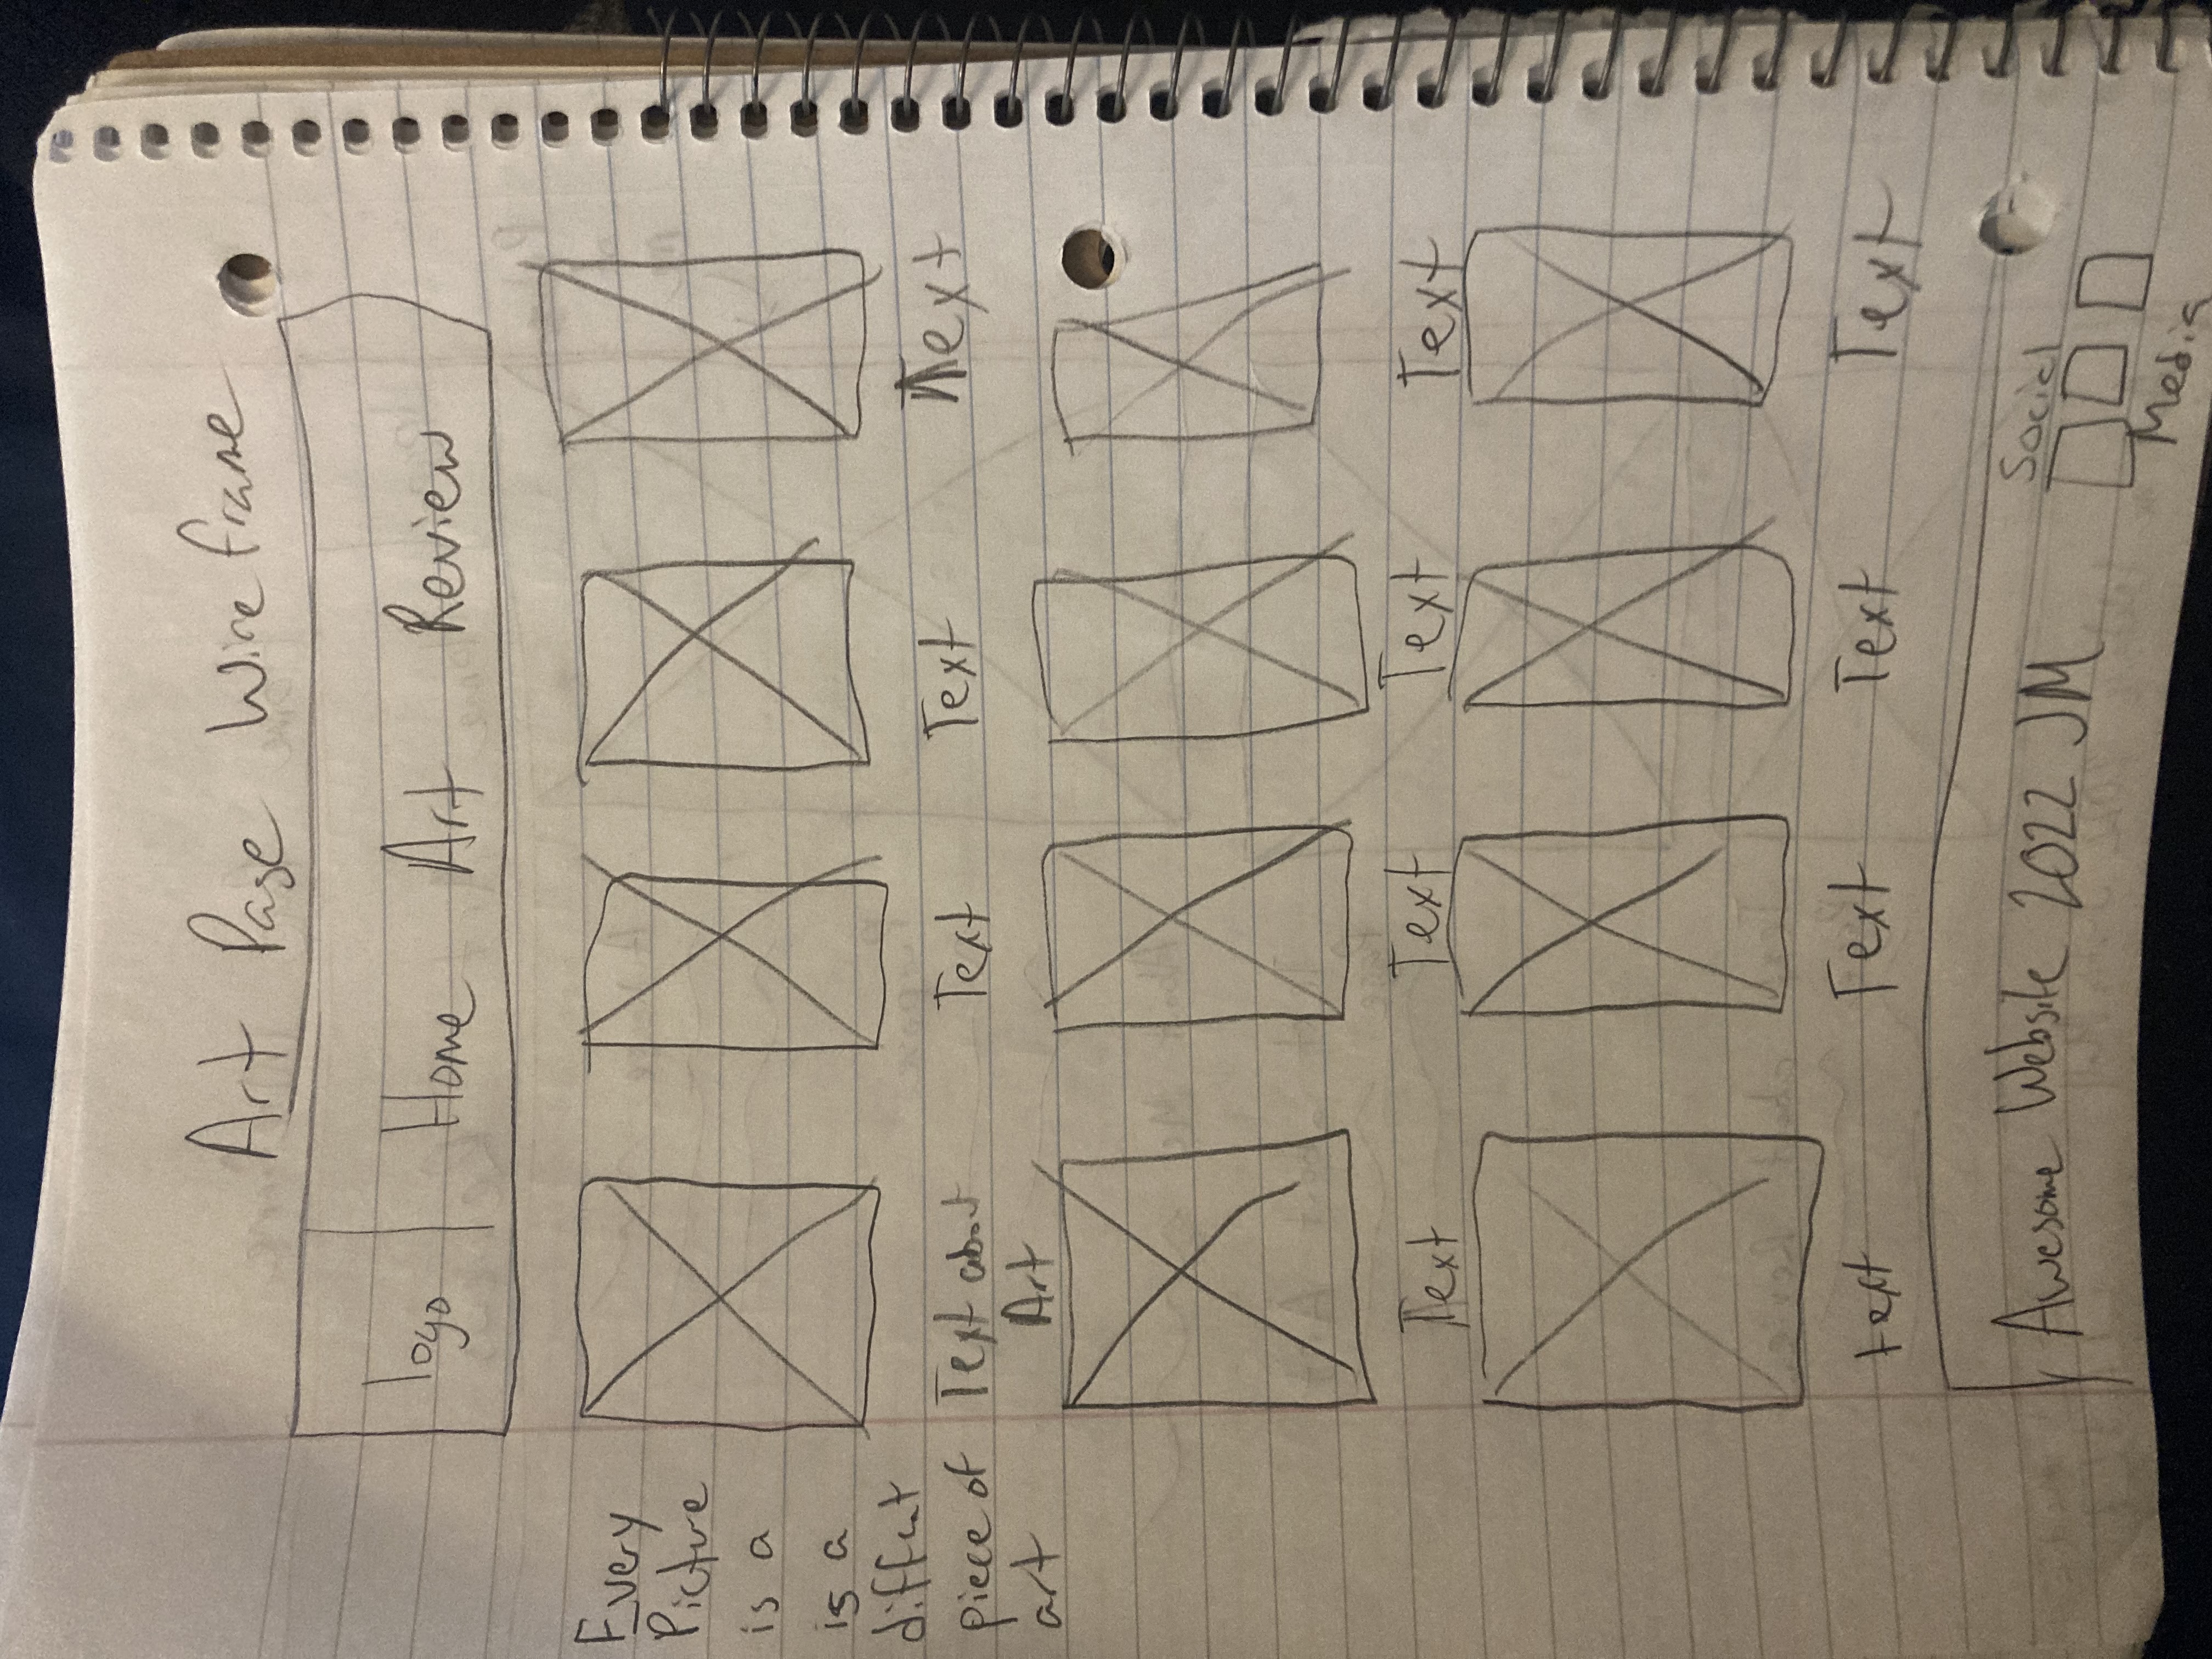 Art Page Wireframe
logo Home Art Review
Every
Picture
is a
is a
diffent
piece of
art
Text about
Art
Text
Text
Text
Text
Text
Text
Text
text
Text
Text
Text
Awesome Website 2022 JM
Social
Media